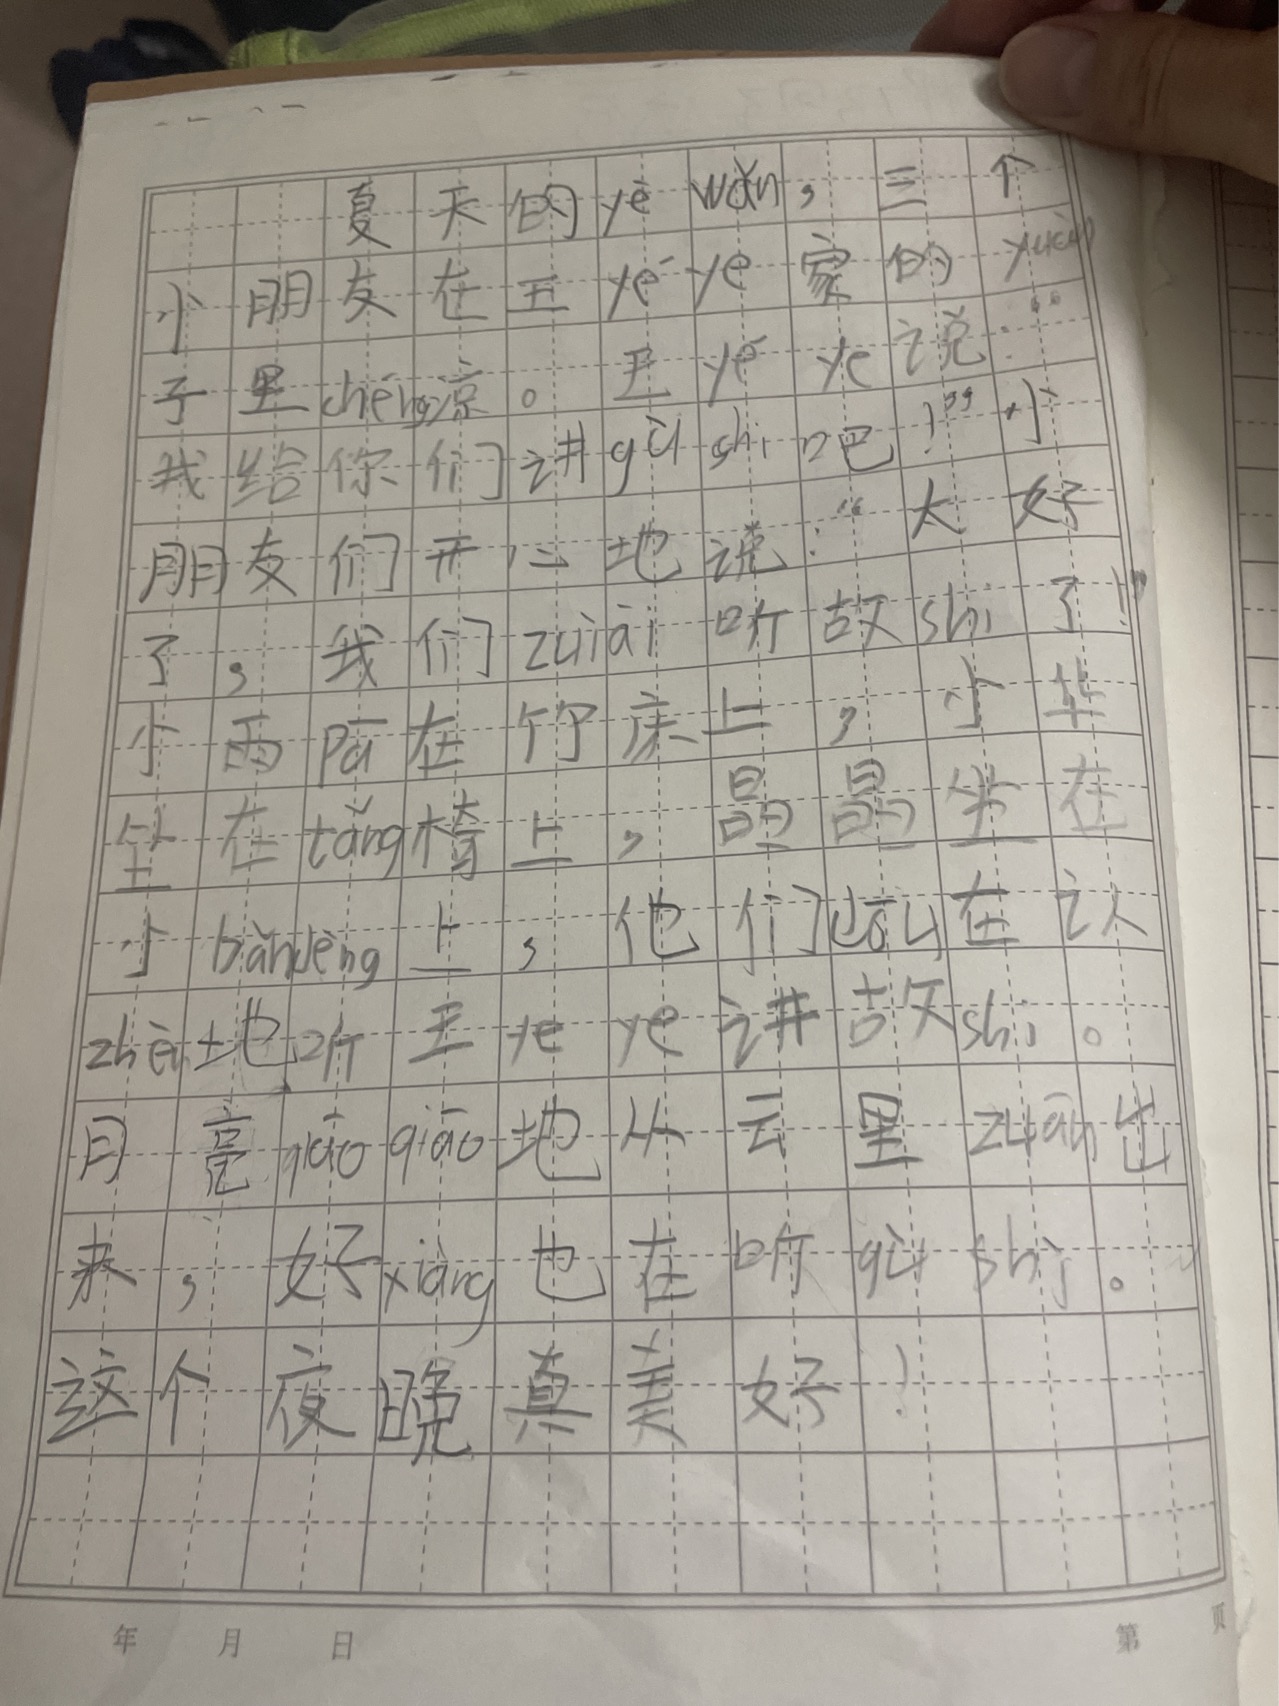 夏天的yè wǎn，三个
小朋友在王yé ye家的yuàn
子里chéng凉。王yé ye说：“
我给你们讲gù shi吧！”小
朋友们开心地说：“太好
了，我们zuìài听故shi了！”
小雨pā在竹床上，小华
坐在tǎng椅上，晶晶坐在
小bǎndèng上，他们dōu在认
zhēn地听王ye ye讲故shi。
月亮qiāo qiāo地从云里zuān出
来，好xiàng也在听gù shì。
这个夜晚真美好！
年 月 日 第 页